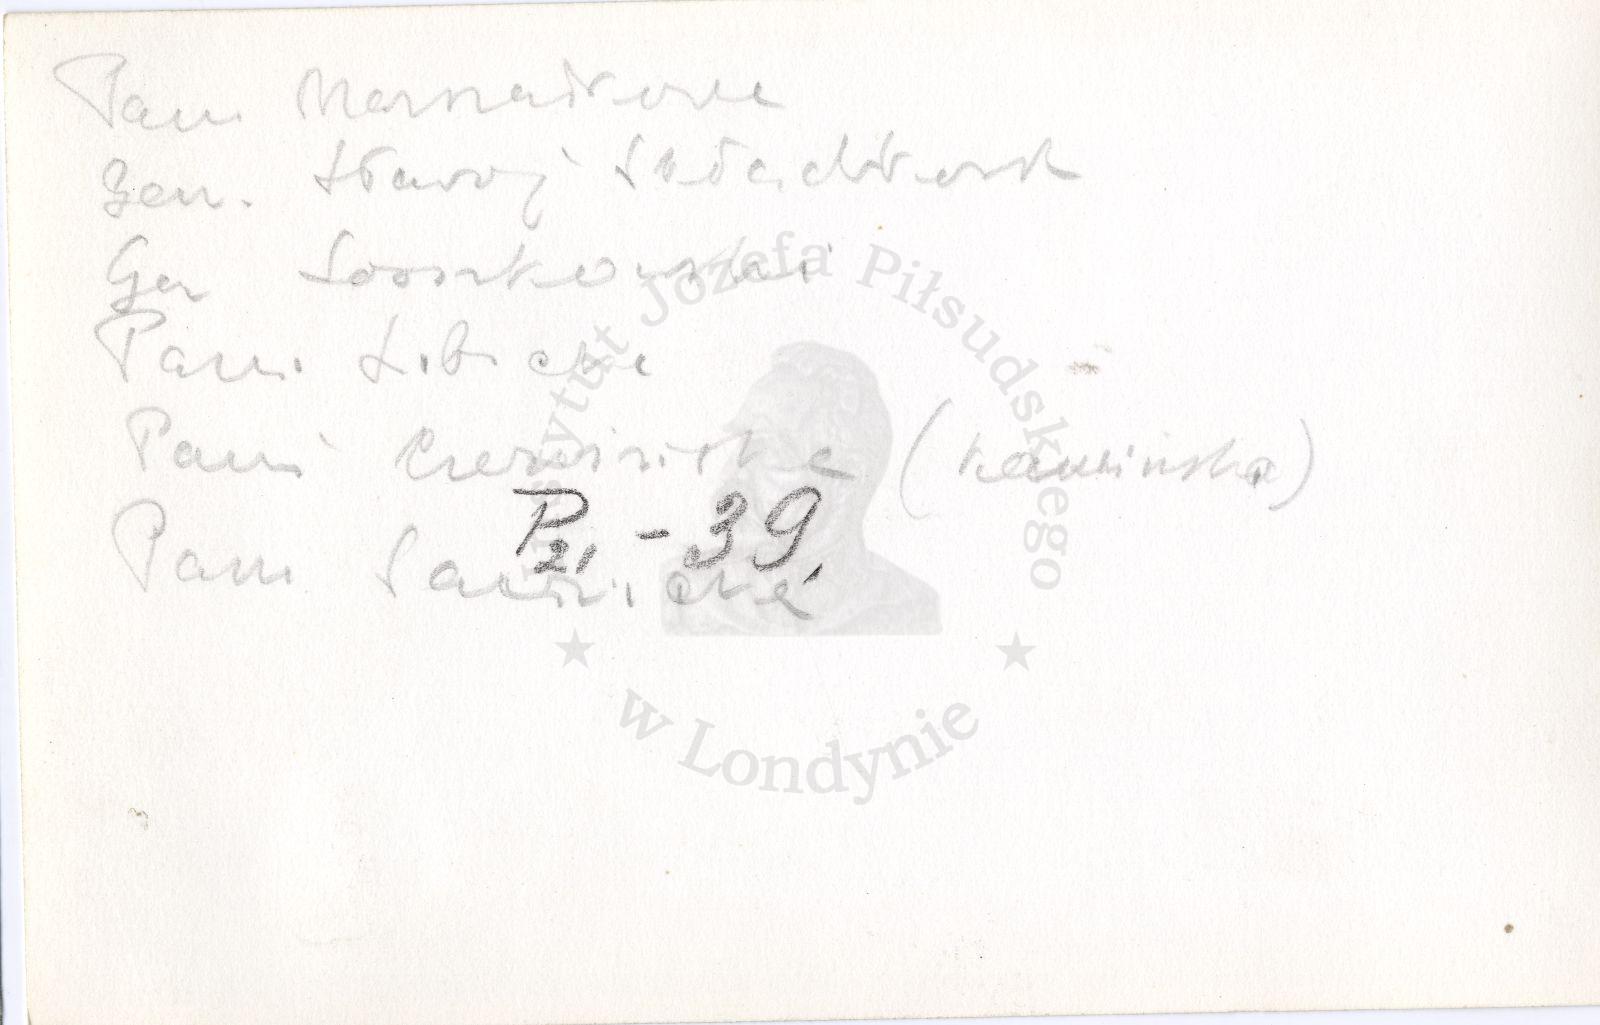 Pani Marszałkowa
Gen. Sławoj Składkowski
Gen Sosnkowski
Pani Libicka
Pani Czerwińska (Kamińska)
Pani
P21 - 39.
Instytut Józefa Piłsudskiego
w Londynie